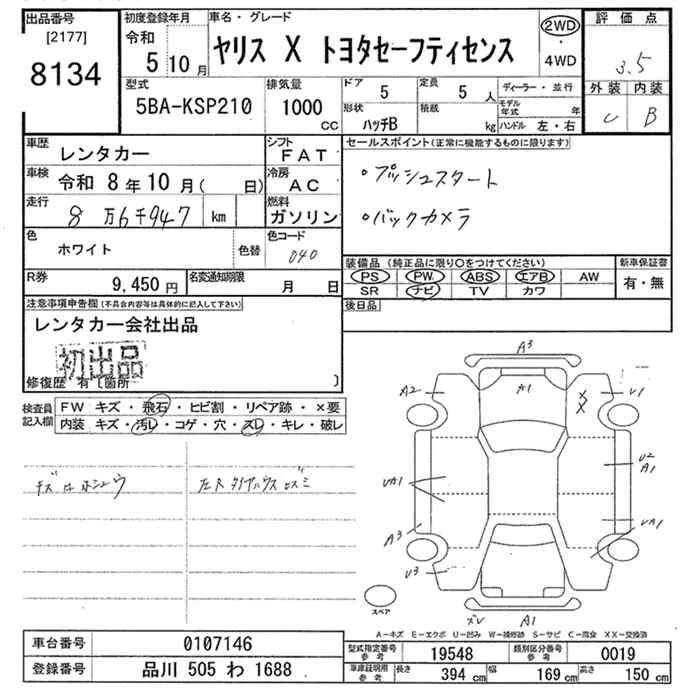 出品番号 初度登録年月 車名・グレード 評価点
[2177] 令和 ヤリス X トヨタセーフティセンス 2WD・4WD 3.5
8134 5 10月 外装 内装
型式 排気量 ドア 定員 ディーラー・並行 C B
5BA-KSP210 1000CC 5 5人 モデル年式 年
形状 ハッチB 積載 kg ハンドル 左・右
車歴 レンタカー シフト FAT セールスポイント(正常に機能するものに限ります)
車検 令和 8年10月( 日) 冷房 AC ・プッシュスタート
走行 8万6千947 km 燃料 ガソリン ・バックカメラ
色 ホワイト 色替 色コード 040
装備品(純正品に限り○をつけてください) 新車保証書
PS PW ABS エアB AW 有・無
SR ナビ TV カワ
R券 9,450円 名変通知期限 月 日
後日品
注意事項申告欄(不具合内容等は具体的に記入して下さい)
レンタカー会社出品
初出品
修復歴 有〔箇所 〕
検査員記入欄 FW キズ・飛石・ヒビ割・リペア跡・×要
内装 キズ・汚レ・コゲ・穴・スレ・キレ・破レ
A3
A2 A1 X X U1
UA1 U2 A1
A3 UA1
U3
ズレ A1
スペア
A-キズ E-エクボ U-凹み W-補修跡 S-サビ C-腐食 XX-交換済
車台番号 0107146 型式指定番号 参考 19548 類別区分番号 参考 0019
登録番号 品川 505 わ 1688 車庫証明用 参考 長さ 394 cm 幅 169 cm 高さ 150 cm